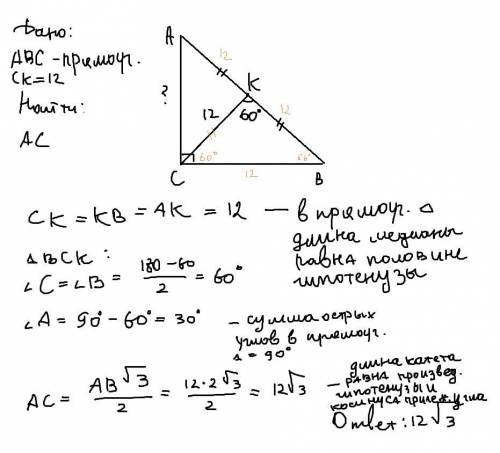 Дано:
ABC - прямоуг.
CK = 12
Найти:
AC
A
12
K
?
12
60°
12
60°
60°
C
12
B
CK = KB = AK = 12 — в прямоуг. Δ
длина медианы
равна половине
гипотенузы
ΔBCK:
∠C = ∠B = (180 - 60)/2 = 60°
∠A = 90° - 60° = 30° - сумма острых
углов в прямоуг.
Δ = 90°
AC = AB√3/2 = 12·2√3/2 = 12√3 - длина катета
равна произвед.
гипотенузы и
косинуса прилеж. угла
Ответ: 12√3